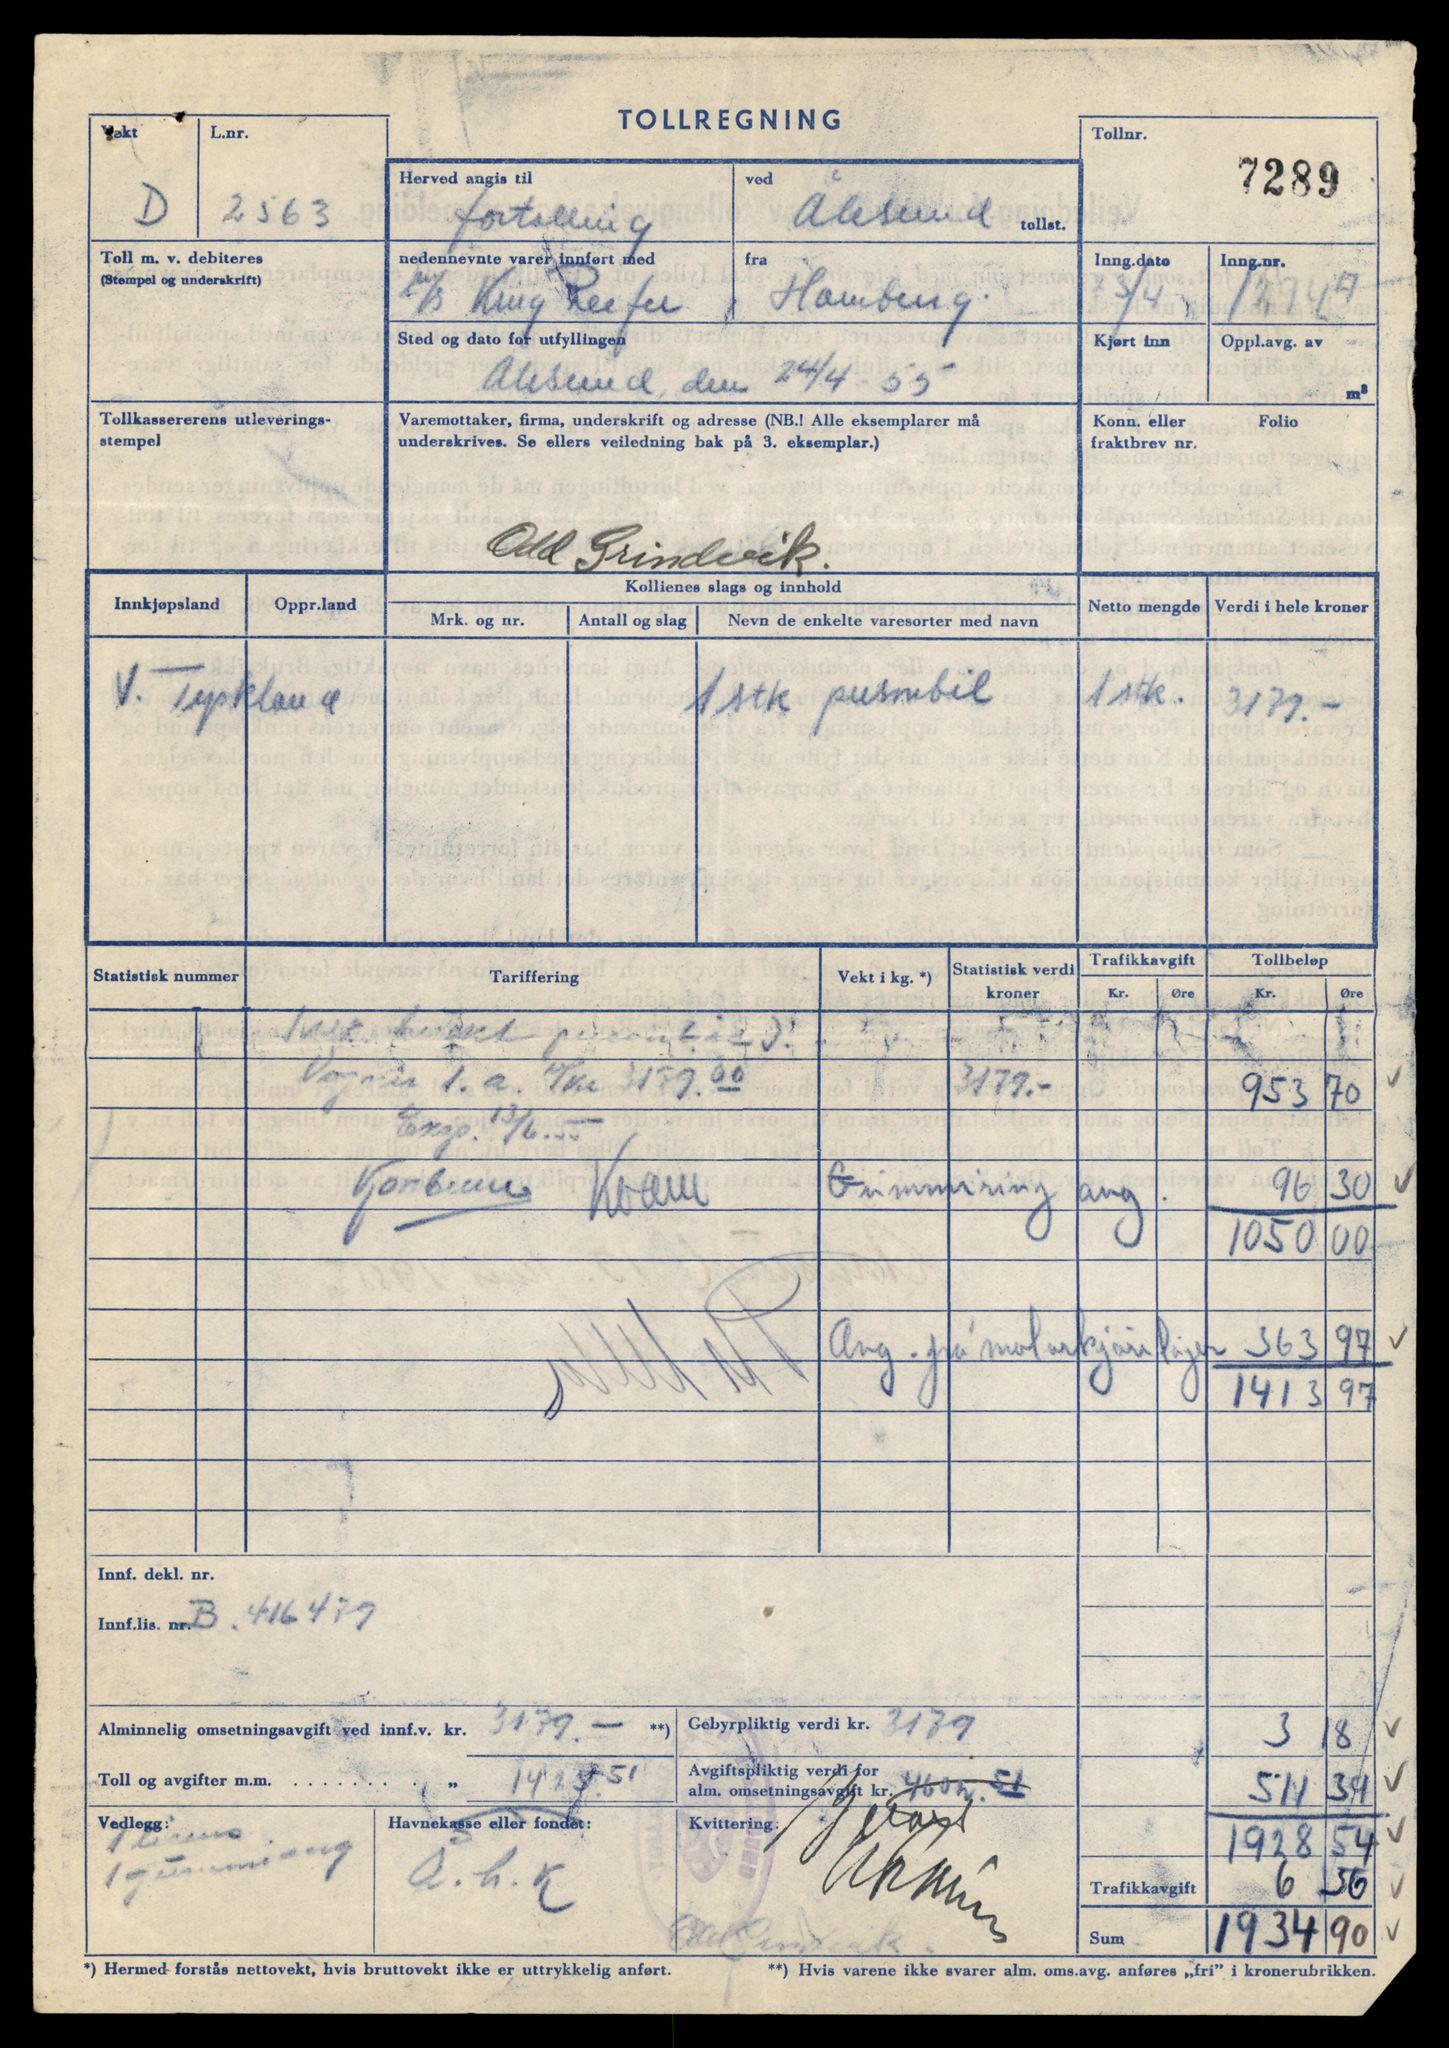 TOLLREGNING
Vekt
L.nr.
Tollnr.
7289
D
2563
Herved angis til
fortolling
ved
Ålesund
tollst.
Toll m. v. debiteres
(Stempel og underskrift)
nedennevnte varer innført med
M/S King Reefer
fra
Hamburg.
Inng.dato
23/4
Inng.nr.
Sted og dato for utfyllingen
Ålesund, den 24/4-55
Kjørt inn
Oppl.avg. av
m³
Tollkassererens utleverings-
stempel
Varemottaker, firma, underskrift og adresse (NB.! Alle eksemplarer må
underskrives. Se ellers veiledning bak på 3. eksemplar.)
Konn. eller
fraktbrev nr.
Folio
Odd Grindvik.
Innkjøpsland
Oppr.land
Kollienes slags og innhold
Netto mengde
Verdi i hele kroner
Mrk. og nr.
Antall og slag
Nevn de enkelte varesorter med navn
V. Tyskland
1 stk personbil
1 stk.
3179.-
Statistisk nummer
Tariffering
Vekt i kg. *)
Statistisk verdi
kroner
Trafikkavgift
Kr.
Øre
Tollbeløp
Kr.
Øre
1 stk. brukt personbil
Vogner 1. a 3179.00
3179.-
953 70
Exp. 13/6.55
Gummiring avg.
96 30
1050 00
Avg. på motorkjøretøyer
363 97
1413 97
Innf. dekl. nr.
Innf.lis. nr. B. 416479
Alminnelig omsetningsavgift ved innf.v. kr. 3179.- **)
Gebyrpliktig verdi kr. 3179
3 18
Toll og avgifter m.m. . . . . . . . . „ 1423.51
Avgiftspliktig verdi for
alm. omsetningsavgift kr. 4602.51
511 39
Vedlegg:
1 gummiavg
Havnekasse eller fondet:
Å. h. k
Kvittering:
1928 54
Trafikkavgift
6 36
Odd Grindvik.
Sum
1934 90
*) Hermed forstås nettovekt, hvis bruttovekt ikke er uttrykkelig anført.
**) Hvis varene ikke svarer alm. oms.avg. anføres „fri” i kronerubrikken.